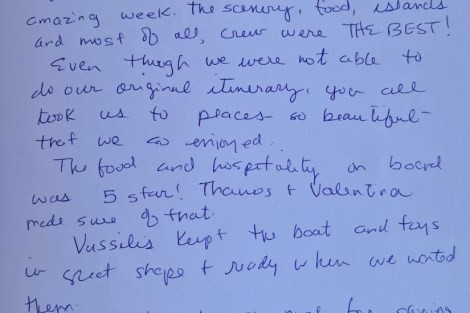 amazing week. The scenery, food, islands
and most of all, crew were THE BEST!
Even though we were not able to
do our original itinerary, you all
took us to places so beautiful -
that we so enjoyed.
The food and hospitality on board
was 5 star! Thanos + Valentina
made sure of that.
Vassilis kept the boat and toys
in great shape + ready when we wanted
them.
for